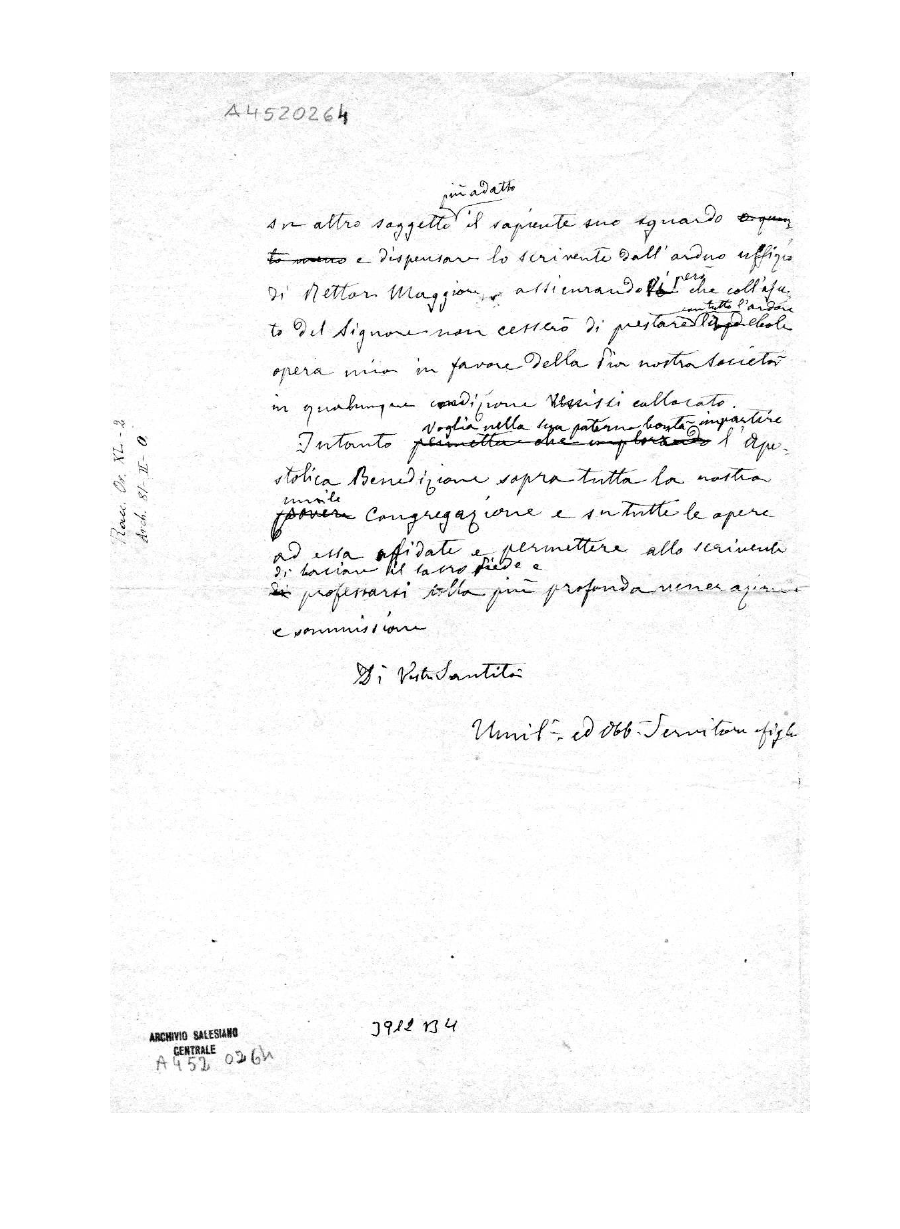 A4520264
più adatto
su altro soggetto il sapiente suo sguardo o quan
to meno e dispensare lo scrivente dall'arduo uffizio
di Rettor Maggiore, assicurando però che coll'aju-
con tutto l'ardore
to del Signore non cesserò di prestare debole
opera mia in favore della Pia nostra Società
in qualunque condizione venissi collocato.
voglia nella sua paterna bontà impartire
Intanto permetta che implorando l'Apo-
stolica Benedizione sopra tutta la nostra
umile
povera Congregazione e su tutte le opere
ad essa affidate e permettere allo scrivente
di baciare il sacro Piede e
di professarsi colla più profonda venerazione
e sommissione
Di Vostra Santità
Umil.º ed Obb. Servitore e figlio
Arch. 81-II-0
ARCHIVIO SALESIANO
CENTRALE
A452 0264
3912 B4